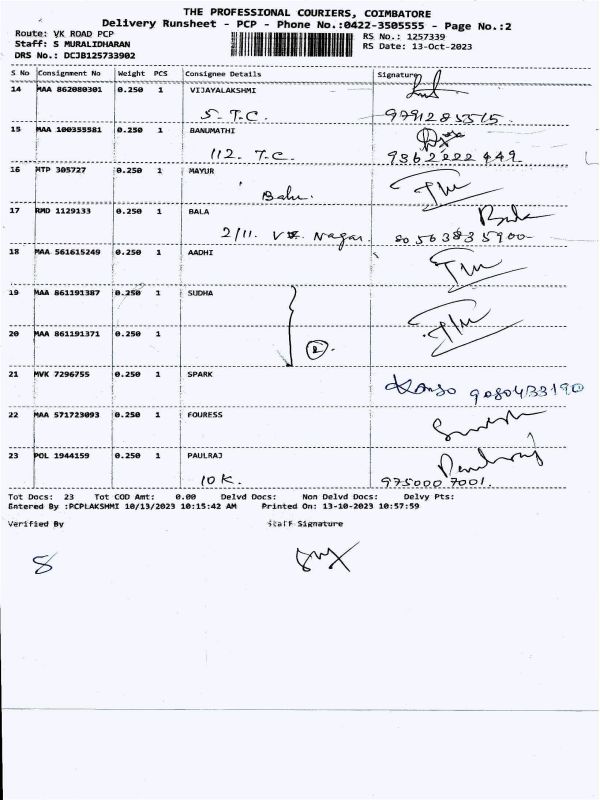 THE PROFESSIONAL COURIERS, COIMBATORE
Delivery Runsheet - PCP - Phone No.:0422-3505555 - Page No.:2
Route: VK ROAD PCP RS No.: 1257339
Staff: S MURALIDHARAN RS Date: 13-Oct-2023
DRS No.: DCJB125733902
S No Consignment No Weight PCS Consignee Details Signature
14 MAA 862080301 0.250 1 VIJAYALAKSHMI
S. T.C.
15 MAA 100355581 0.250 1 BANUMATHI
112. T.C. 9362222449
16 MTP 305727 0.250 1 MAYUR
Balu.
17 RMD 1129133 0.250 1 BALA Bala
2/11. VK Nagar. 80563835900
18 MAA 561615249 0.250 1 AADHI
19 MAA 861191387 0.250 1 SUDHA
20 MAA 861191371 0.250 1
2.
21 MVK 7296755 0.250 1 SPARK
9080433190
22 MAA 571723093 0.250 1 FOURESS
23 POL 1944159 0.250 1 PAULRAJ Paulraj
10K. 9750007001.
Tot Docs: 23 Tot COD Amt: 0.00 Delvd Docs: Non Delvd Docs: Delvy Pts:
Entered By :PCPLAKSHMI 10/13/2023 10:15:42 AM Printed On: 13-10-2023 10:57:59
Verified By Staff Signature